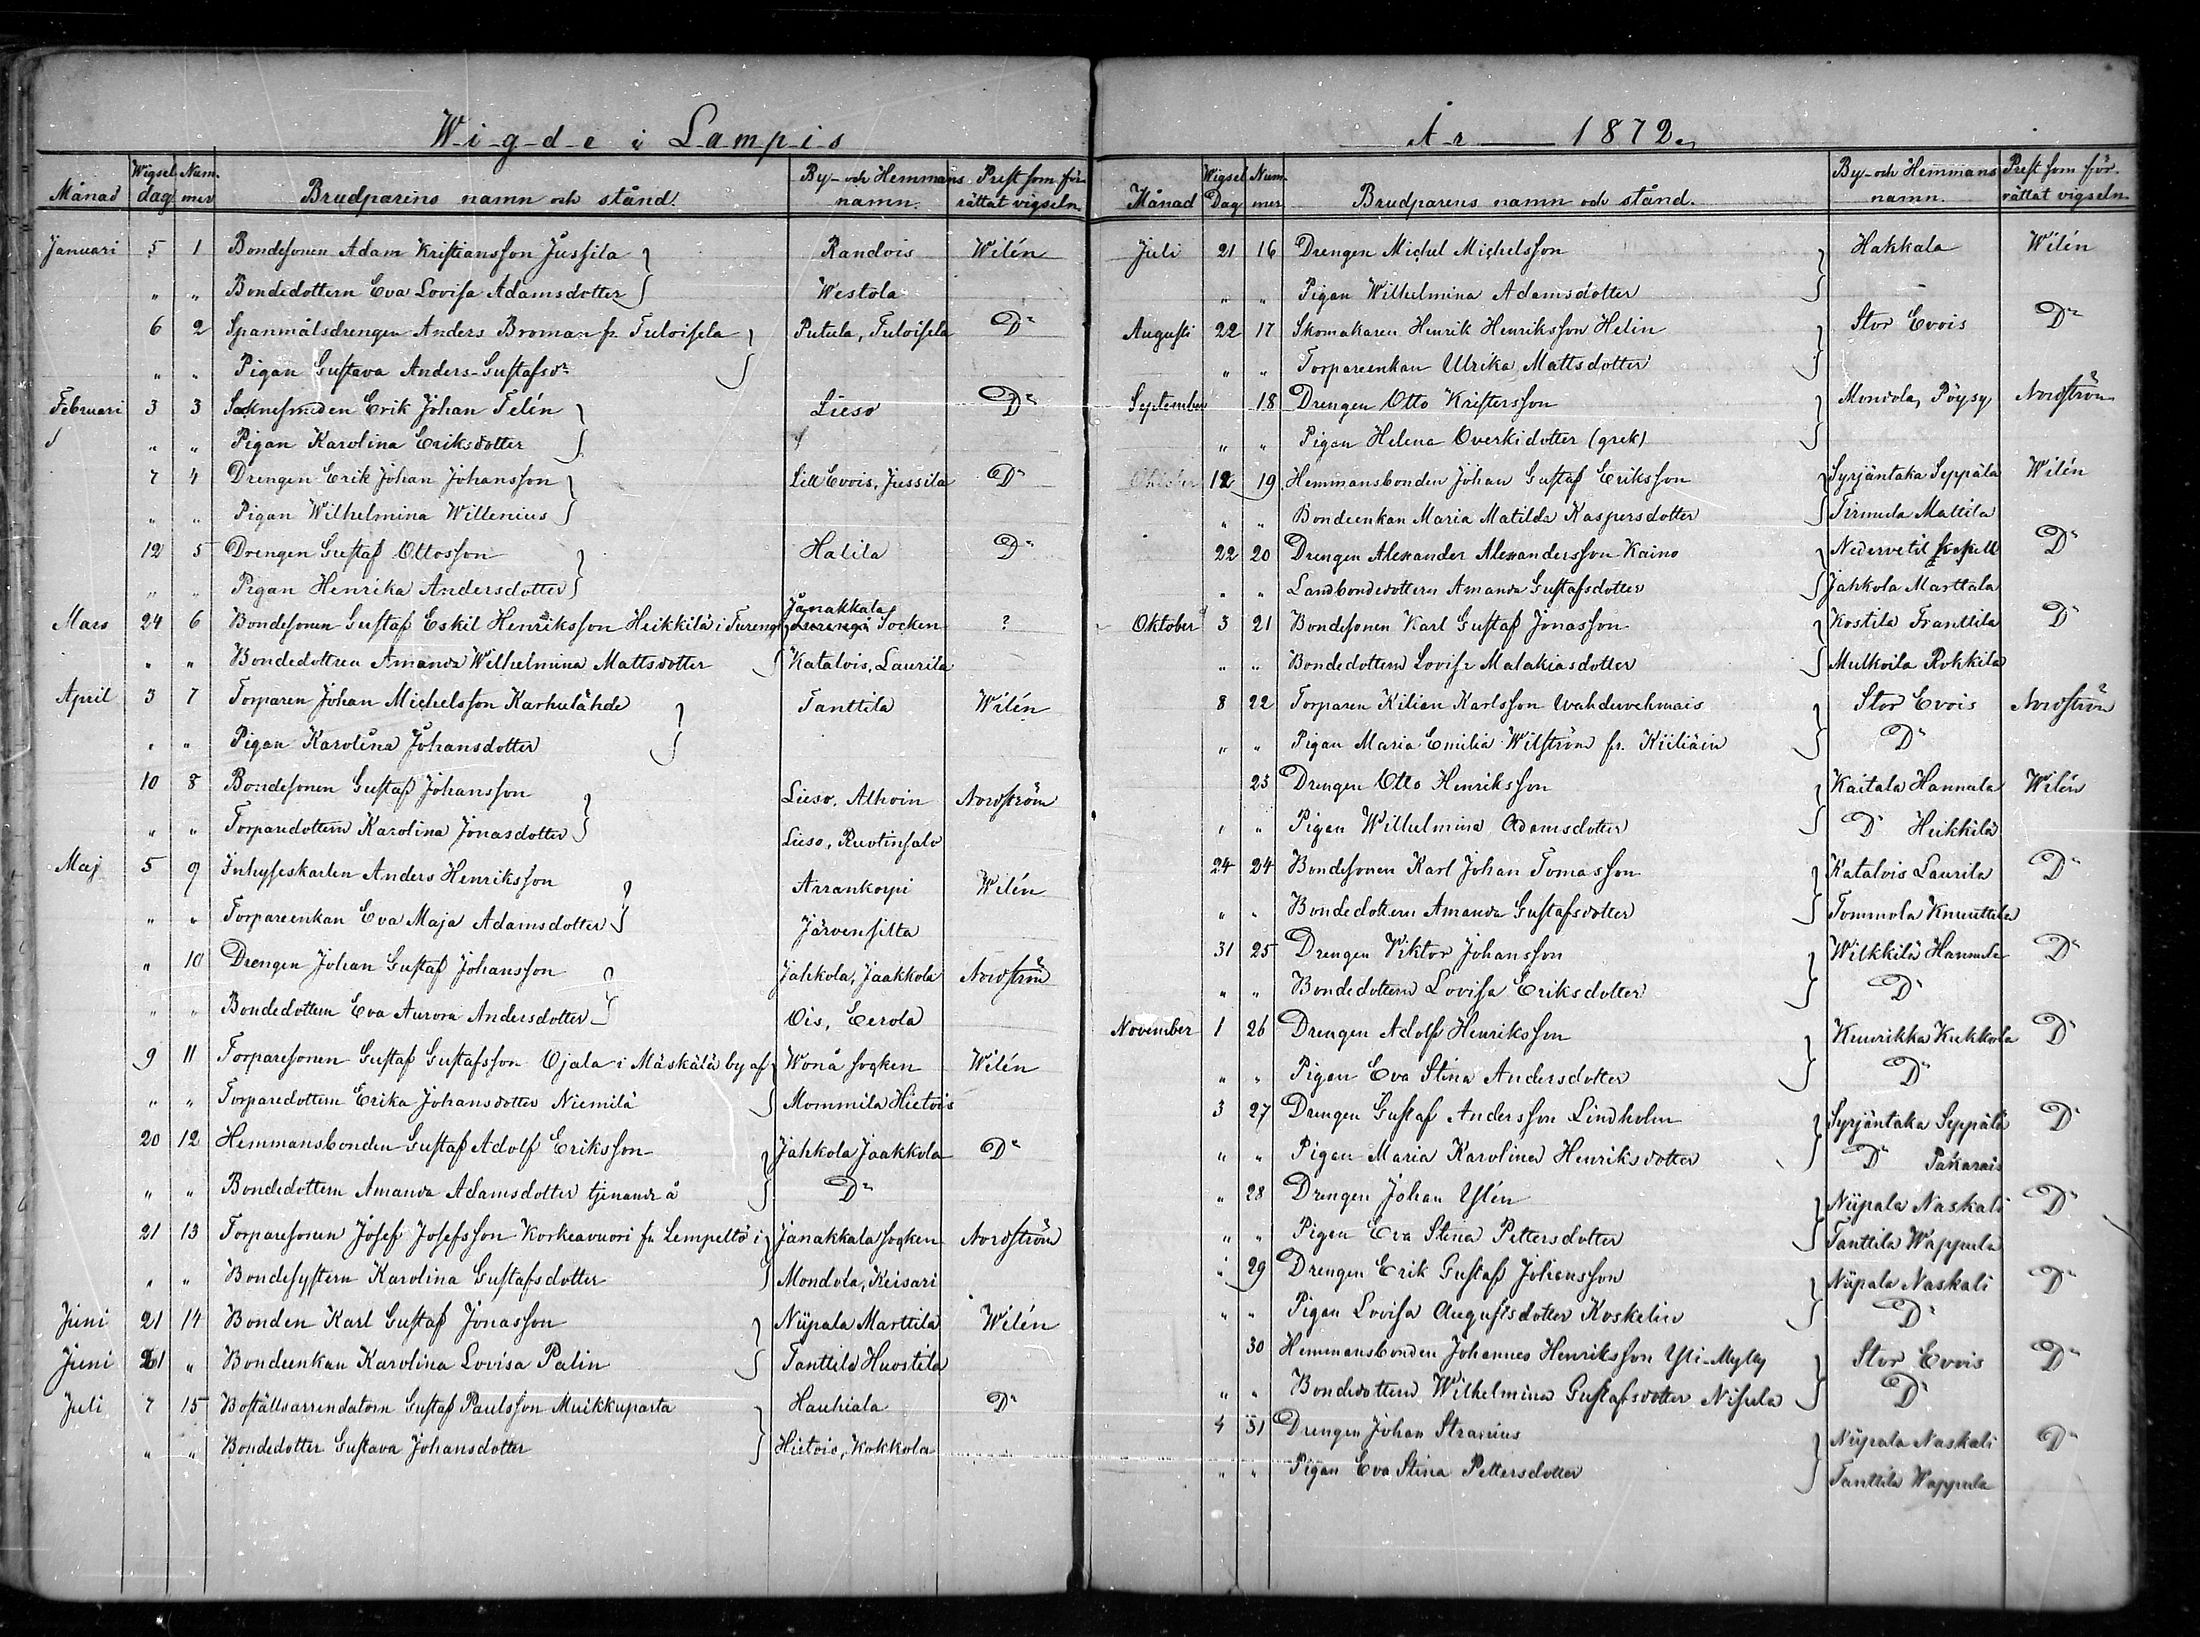 Wigde i Lampis
Månad Wigsel dag Num- mer Brudparens namn och stånd. By- och Hemmans namn. Prest som för- rättat vigseln
Januari 5 1 Bondesonen Adam Kristiansson Jussila Randois Wilén
" " Bondedottern Eva Lovisa Adamsdotter Westola
6 2 Spanmålsdrengen Anders Broman fr. Tuloisela Putula, Tuloisela Do
" " Pigan Gustava Anders-Gustafsdr
Februari 3 3 Socknesmeden Erik Johan Telén Lieso Do
" " Pigan Karolina Eriksdotter
7 4 Drengen Erik Johan Johansson Lill Evois, Jussila Do
" " Pigan Wilhelmina Willenius
12 5 Drengen Gustaf Ottosson Halila Do
" " Pigan Henrika Andersdotter
Mars 24 6 Bondesonen Gustaf Eskil Henriksson Heikkilä i Turengi Janakkala Socken ?
" " Bondedottren Amanda Wilhelmina Mattsdotter Katalois, Laurila
April 3 7 Torparen Johan Michelsson Karhulähde Tanttila Wilén
" " Pigan Karolina Johansdotter
10 8 Bondesonen Gustaf Johansson Lieso, Alhoin Nordström
" " Torparedottern Karolina Jonasdotter Lieso, Ruotinsalo
Maj 5 9 Inhyseskarlen Anders Henriksson Arrankorpi Wilén
" " Torpareenkan Eva Maja Adamsdotter Järvensilta
" 10 Drengen Johan Gustaf Johansson Jahkola, Jaakkola Nordström
" " Bondedottern Eva Aurora Andersdotter Ois, Eerola
9 11 Torparesonen Gustaf Gustafsson Ojala i Mäskälä by af Wonå socken Wilén
" " Torparedottern Erika Johansdotter Niemilä Mommila Hietois
20 12 Hemmansbonden Gustaf Adolf Eriksson Jahkola Jaakkola Do
" " Bondedottern Amanda Adamsdotter tjenande å Do
21 13 Torparesonen Josef Josefsson Korkeavuori fr. Lempeltö i Janakkala socken Nordström
" " Bondesystern Karolina Gustafsdotter Mondola, Keisari
Juni 21 14 Bonden Karl Gustaf Jonasson Niipala Marttila Wilén
Juni 21 " Bondeenkan Karolina Lovisa Palin Tanttila Huostila
Juli 7 15 Boställsarrendatorn Gustaf Paulsson Muikkuparta Hauhiala Do
" " Bondedotter Gustava Johansdotter Hietois, Kokkola
År 1872.
Månad Wigsel Dag Num- mer Brudparens namn och stånd. By- och Hemmans namn. Prest som för- rättat vigseln.
Juli 21 16 Drengen Michel Michelsson Hakkala Wilén
" " Pigan Wilhelmina Adamsdotter
Augusti 22 17 Skomakaren Henrik Henriksson Helin Stor Evois Do
" " Torpareenkan Ulrika Mattsdotter
September 18 Drengen Otto Kristersson Mondola, Pöysy Nordström
" " Pigan Helena Overkidotter (grek)
Oktober 12 19 Hemmansbonden Johan Gustaf Eriksson Syrjäntaka Seppälä Wilén
" " Bondeenkan Maria Matilda Kaspersdotter Tirmula Mattila
22 20 Drengen Alexander Alexandersson Kaino Nedervetil Do
" " Landbondedottern Amanda Gustafsdotter Jahkola Marttala
Oktober 3 21 Bondesonen Karl Gustaf Jonasson Kostila Franttila Do
" " Bondedottern Lovisa Malakiasdotter Mulkoila Rokkila
8 22 Torparen Kilian Karlsson Wahdervehmais Stor Evois Nordström
" " Pigan Maria Emilia Wilström fr. Kiiliäin Do
23 Drengen Otto Henriksson Kaitala Hannula Wilén
" " Pigan Wilhelmina Adamsdotter Do Heikkilä
24 24 Bondesonen Karl Johan Tomasson Katalois Laurila Do
" " Bondedottern Amanda Gustafsdotter Tommola Knuuttila
31 25 Drengen Viktor Johansson Wilkkilä Hannula Do
" " Bondedottern Lovisa Eriksdotter Do
November 1 26 Drengen Adolf Henriksson Kuurikka Kukkola Do
" " Pigan Eva Stina Andersdotter Do
3 27 Drengen Gustaf Andersson Lindholm Syrjäntaka Seppälä Do
" " Pigan Maria Karolina Henriksdotter Do Pakarais
" 28 Drengen Johan Ylén Niipala Naskali Do
" " Pigan Eva Stina Pettersdotter Tanttila Wappula
" 29 Drengen Erik Gustaf Johansson Niipala Naskali Do
" " Pigan Lovisa Augustsdotter Koskelin Do
30 Hemmansbonden Johannes Henriksson Yli-Mylly Stor Evois Do
" " Bondedottern Wilhelmina Gustafsdotter Nisula Do
4 31 Drengen Johan Niipala Naskali Do
" " Pigan Eva Stina Pettersdotter Tanttila Wappula